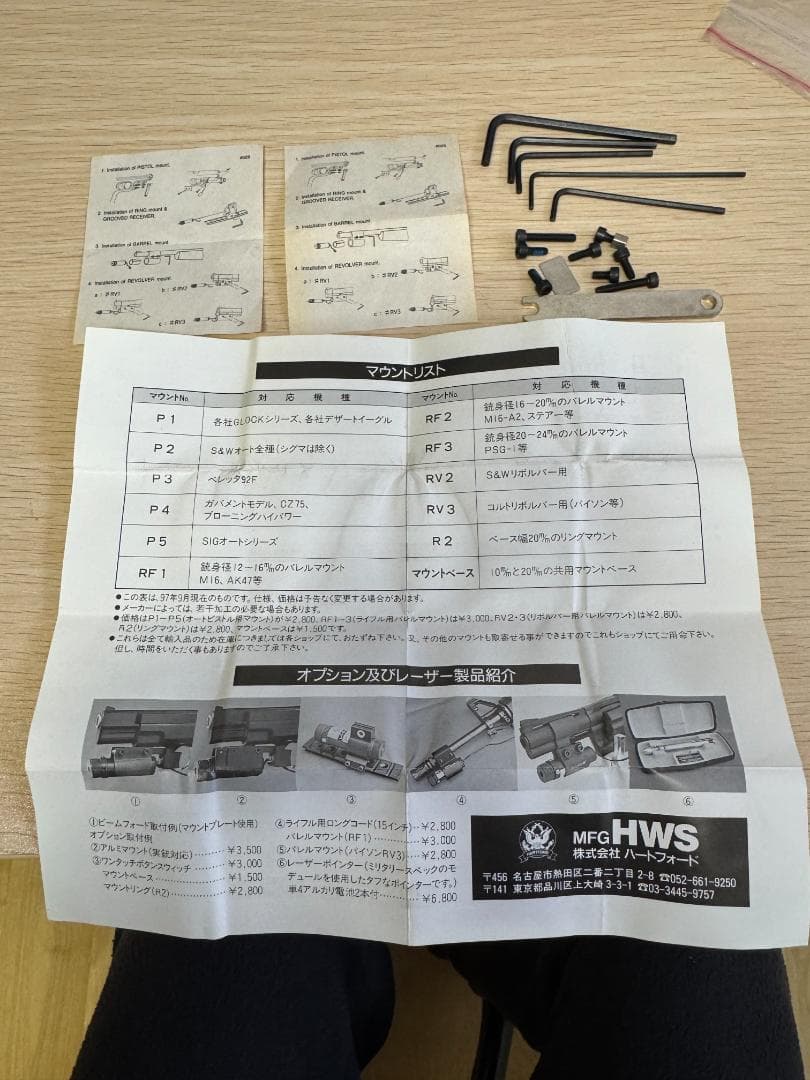 #928
1. Installation of PISTOL mount.
2. Installation of RING mount & GROOVED RECEIVER.
3. Installation of BARREL mount
4. Installation of REVOLVER mount.
a : #RV1
b : #RV2
c : #RV3
1. Installation of PISTOL mount.
2. Installation of RING mount & GROOVED RECEIVER.
3. Installation of BARREL mount
4. Installation of REVOLVER mount.
a : #RV1
b : #RV2
c : #RV3
マウントリスト
マウントNo. 対応機種 マウントNo. 対応機種
P1 各社GLOCKシリーズ、各社デザートイーグル
RF2 銃身径16〜20m/mのバレルマウント
M16-A2、ステアー等
P2 S&Wオート全種(シグマは除く)
RF3 銃身径20〜24m/mのバレルマウント
PSG-1等
P3 ベレッタ92F
RV2 S&Wリボルバー用
P4 ガバメントモデル、CZ75、
ブローニングハイパワー
RV3 コルトリボルバー用(パイソン等)
P5 SIGオートシリーズ
R2 ベース幅20m/mのリングマウント
RF1 銃身径12〜16m/mのバレルマウント
M16、AK47等
マウントベース 10m/mと20m/mの共用マウントベース
●この表は、97年9月現在のものです。仕様、価格は予告なく変更する場合があります。
●メーカーによっては、若干加工の必要な場合もあります。
●価格はP1〜P5(オートピストル用マウント)が¥2,800、RF1〜3(ライフル用バレルマウント)は¥3,000、RV2・3(リボルバー用バレルマウント)は¥2,800、
R2(リングマウント)は¥2,800、マウントベースは¥1,500です。
●これらは全て輸入品のため在庫につきましては各ショップにて、おたずね下さい。又、その他のマウントも取寄せる事ができますのでこれもショップにてご用命下さい。
但し、時間をいただく事もありますのでご了承下さい。
オプション及びレーザー製品紹介
① ② ③ ④ ⑤ ⑥
①ビームフォード取付例(マウントプレート使用)
オプション取付例
②アルミマウント(実銃対応)……¥3,500
③ワンタッチボタンスイッチ……¥3,000
マウントベース……¥1,500
マウントリング(R2)……¥2,800
④ライフル用ロングコード(15インチ)‥¥2,800
バレルマウント(RF1)……¥3,000
⑤バレルマウント(パイソンRV3)……¥2,800
⑥レーザーポインター(ミリタリースペックのモ
デュールを使用したタフなポインターです。)
単4アルカリ電池2本付……¥6,800
MFG HWS
株式会社 ハートフォード
〒456 名古屋市熱田区二番二丁目2-8 ☎052-661-9250
〒141 東京都品川区上大崎3-3-1 ☎03-3445-9757